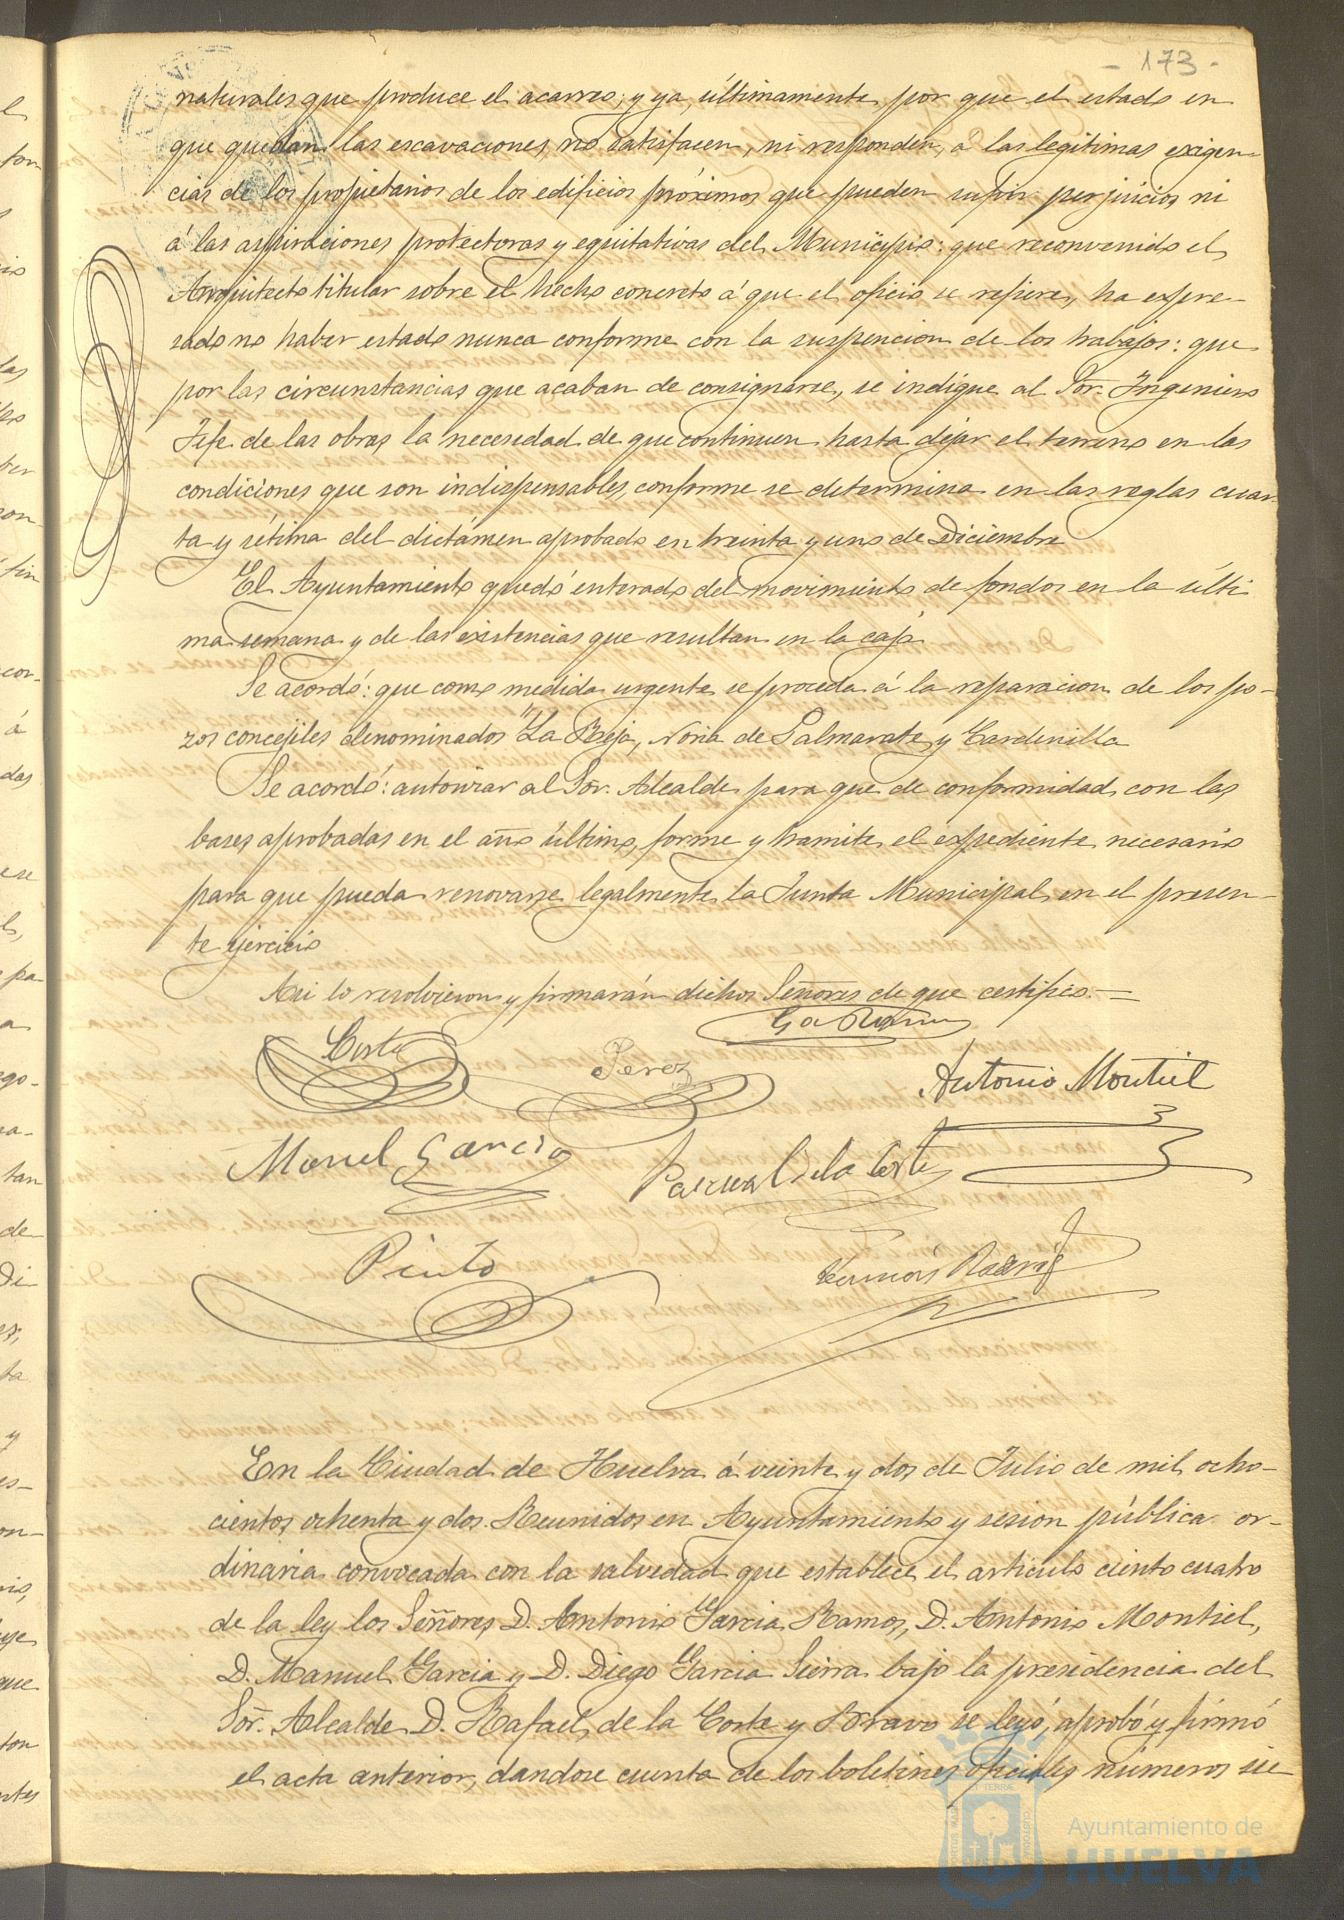 - 173 -
naturales que produce el acarreo; y ya, últimamente, por que el estado en
que quedan las escavaciones, no satisfacen, ni responden, á las legitimas exigen-
cias de los propietarios de los edificios próximos que pueden sufrir perjuicios, ni
á las aspiraciones protectoras y equitativas del Municipio: que reconvenido el
Arquitecto titular sobre el hecho concreto á que el oficio se refiere, ha expre-
sado no haber estado nunca conforme con la suspencion de los trabajos: que
por las circunstancias que acaban de consignarse, se indique al Sor. Ingeniero
Jefe de las obras la necesidad de que continuen hasta dejar el terreno en las
condiciones que son indispensables, conforme se determina en las reglas cuar-
ta y sétima del dictámen aprobado en treinta y uno de Diciembre
El Ayuntamiento quedó enterado del movimiento de fondos en la últi
ma semana y de las existencias que resultan en la caja
Se acordó: que como medida urgente se proceda á la reparacion de los po-
zos concejiles denominados "La Reja, Noria de Palmarate, y Cardenilla
Se acordó: autorizar al Sor. Alcalde para que de conformidad con las
bases aprobadas en el año último, forme y tramite el expediente necesario
para que pueda renovarse legalmente la Junta Municipal en el presen-
te ejercicio
Asi lo resolvieron y firmarán dichos Señores de que certifico. =
Ga Ramos
Corte
Perez
Antonio Montiel
Manuel Garcia
Pascual de la Corte
Pinto
En la Ciudad de Huelva á veinte y dos de Julio de mil ocho-
cientos ochenta y dos. Reunidos en Ayuntamiento y sesión pública or-
dinaria convocada con la salvedad que establece el articulo ciento cuatro
de la ley los Señores D. Antonio Garcia Ramos, D. Antonio Montiel,
D. Manuel Garcia y D. Diego Garcia Sierra bajo la presidencia del
Sor. Alcalde D. Rafael de la Corte y Bravo se leyó, aprobó y firmó
el acta anterior, dandose cuenta de los boletines oficiales números sie
Ayuntamiento de
HUELVA